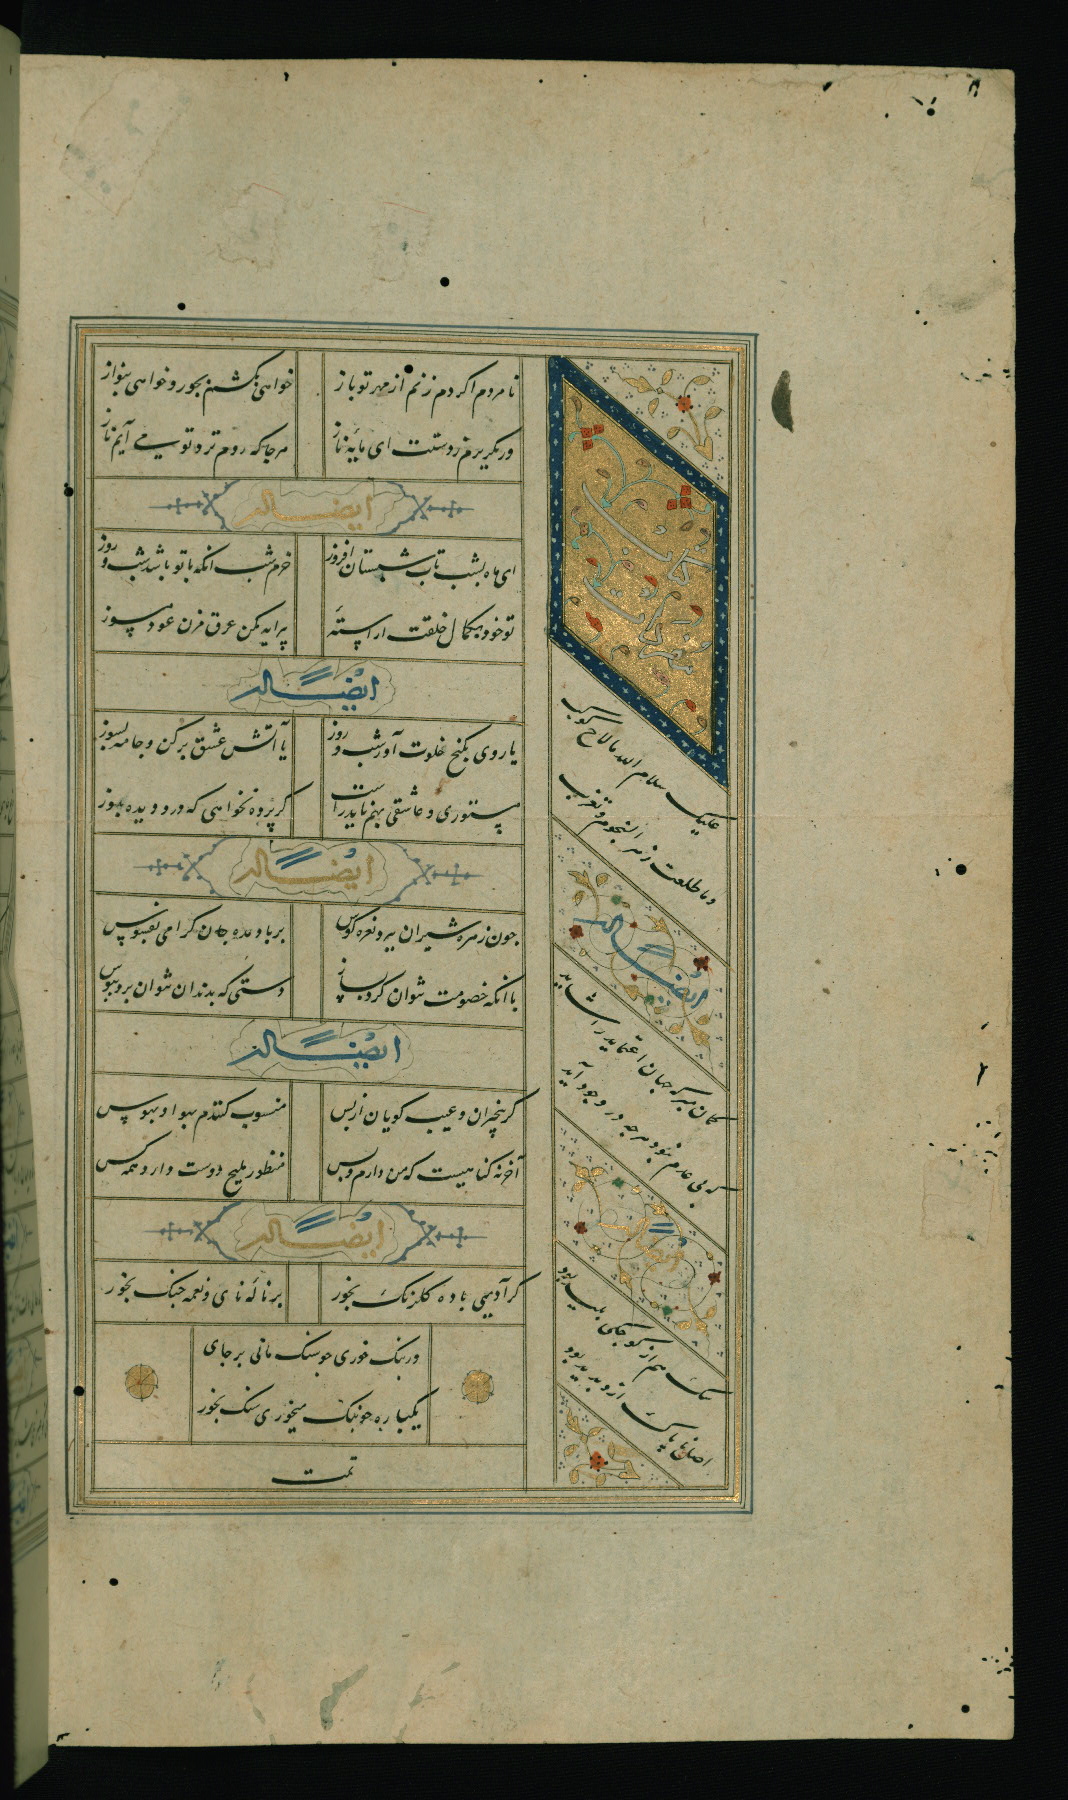 تا مردم اگر دم زنم از مهر تو باز
خواهی بکشم بجور و خواهی بنواز
ور بگریزم ز دستت ای مایه ناز
هرجا که روم تر و تو می آیم باز
ایضا له
ای ماه شب تاب شبستان افروز
خرم شب آنکه با تو باشد شب و روز
تو خود بکمال خلقت آراسته
پیرایه مکن عرق مزن عود مسوز
ایضا له
یا روی بکنج خلوت آور شب و روز
یا آتش عشق بر کن و جامه بسوز
مستوری و عاشقی بهم ناید راست
گر پرده نخواهی که درد دیده بدوز
ایضا له
چون زهره شیران بدرد نعره کوس
بر باد مده جان گرامی بفسوس
با آنکه خصومت نتوان کرد بساز
دستی که بدندان نتوان برد ببوس
ایضا له
گر بیخبران و عیب گویان از پس
منسوب کنندم بهوا و بهوس
آخر نه گناهیست که من دارم و بس
منظور ملیح دوست دارد همه کس
ایضا له
گر آدمیی باده گلرنگ بخور
بر ناله نای و نغمه چنگ بخور
ور بنگ خوری چو سنگ مانی بر جای
یکباره چو بنگ میخوری سنگ بخور
تمت
کتاب مفردات
علیک سلام الله ما لاح کوکب
وما طلعت زهر النجوم وتغرب
ایضا له
گمان مبر که جهان اعتماد را شاید
که بی عدم نبود هرچه در وجود آید
ایضا له
سگ هم از کوچکی پلید بود
اصل ناپاک ازو پدید بود